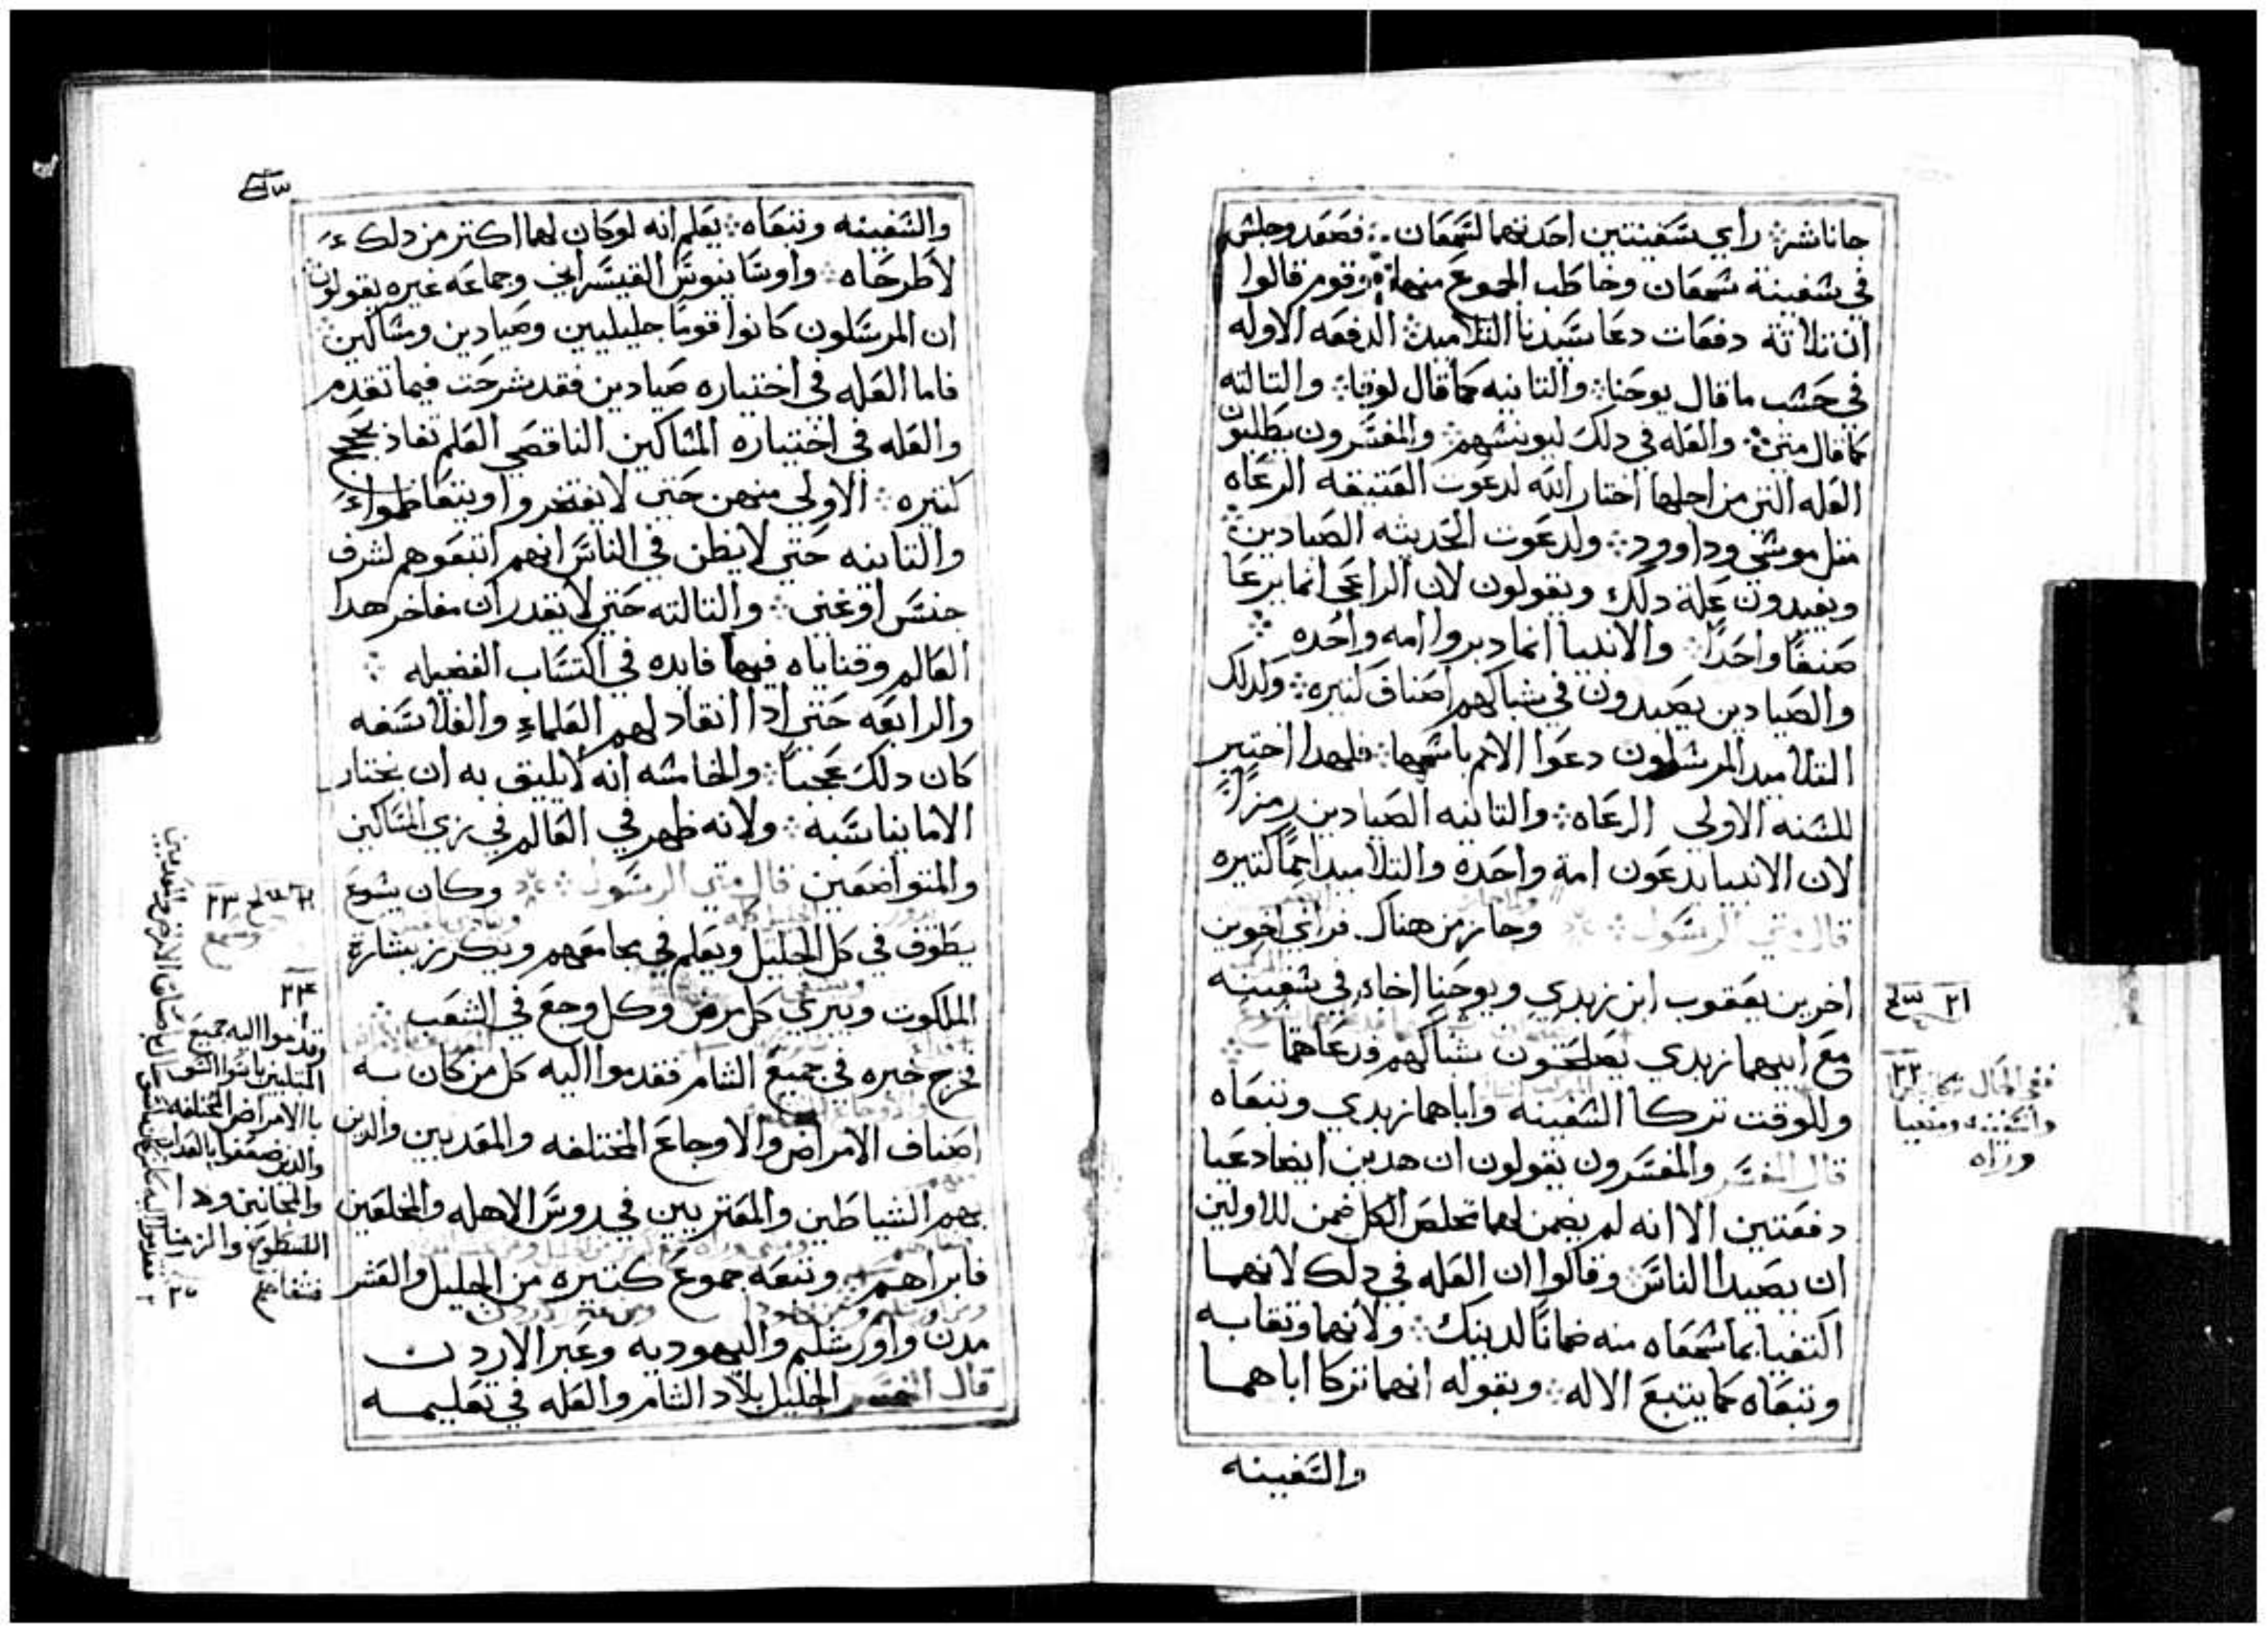 جاناشر راي سفينتين احدتهما لشمعان فصعد وجلس
في سفينة شمعان وخاطب الجموع منها وقوم قالوا
ان تلاتة دفعات دعا سيدنا التلاميد الدفعه الاوله
في حسب ما قال يوحنا والتانيه كما قال لوقا والتالته
كما قال متى والعله في دلك ليونسهم والمفسرون يطلبون
العله التي من اجلها اختار الله لدعوت العتيقه الرعاه
متل موسي وداوود ولدعوت الحديثه الصيادين
ويفيدون علة دلك ويقولون لان الراعي انما يرعا
صنفًا واحدًا والانبيا انما دبروا امه واحده
والصيادين يصيدون في شباكهم اصناف كتيره وكدلك
التلاميد المرسلون دعوا الامم باسمها فلهدا اختير
للسنه الاولي الرعاه والتانيه الصيادين رمزًا
لان الانبيا يدعون امة واحده والتلاميد اممًا كتيره
قال متي الرسول وجاز من هناك فراي اخوين
اخرين يعقوب ابن زبدي ويوحنا اخاه في سفينه
مع ابيهما زبدي يصلحون شباكهم فدعاهما
وللوقت تركا السفينه واباهما زبدي وتبعاه
قال المفسر والمفسرون يقولون ان هدين ايضا دعيا
دفعتين الا انه لم يضمن لهما تخلص الكل ضمن للاولين
ان يصيدا الناس وقالوا ان العله في دلك لانهما
اكتفيا بما سمعاه منه ضمانًا لدينك ولانهما وتقا به
وتبعاه كما يتبع الاله وبقوله انهما تركا اباهما
والسفينه
٢١
٢٢
والسفينه وتبعاه يعلم انه لو كان لهما اكتر من دلك
لاطرحاه واوسابيوس القيسراني وجماعه غيره يقولون
ان المرسلون كانوا قومًا جليليين وصيادين ومساكين
فاما العله في اختياره صيادين فقد شرحت فيما تقدم
والعله في اختياره المساكين الناقصي العلم تفاد بحجج
كتيره الاولي منهن حتي لا يفتخروا ويتعاظموا
والتانيه حتي لا يظن في الناس انهم اتبعوهم لشرف
جنس او غني والتالته حتي لا تقدر ان مفاخر هدا
العالم وقناياه فيهما فايده في اكتساب الفضيله
والرابعه حتي ادا انقاد لهم العلماء والفلاسفه
كان دلك عجبًا والخامسه انه لا يليق به ان يختار
الا ما يناسبه ولانه ظهر في العالم في زي المساكين
والمتواضعين قال متي الرسول وكان يسوع
يطوف في كل الجليل ويعلم في مجامعهم ويكرز بشارة
الملكوت ويبري كل مرض وكل وجع في الشعب
فخرج خبره في جميع الشام فقدموا اليه كل من كان به
اصناف الامراض والاوجاع المختلفه والمعدبين والدين
بهم الشياطين والمعتربين في روس الاهله والمخلعين
فابراهم وتبعه جموع كتيره من الجليل والعشر
مدن واورشليم واليهوديه وعبر الاردن
قال المفسر الجليل بلاد الشام والعله في تعليمه
٢٣
٢٤
وقدموا اليه جميع
بالامراض المختلفه
فشفاهم
٢٥